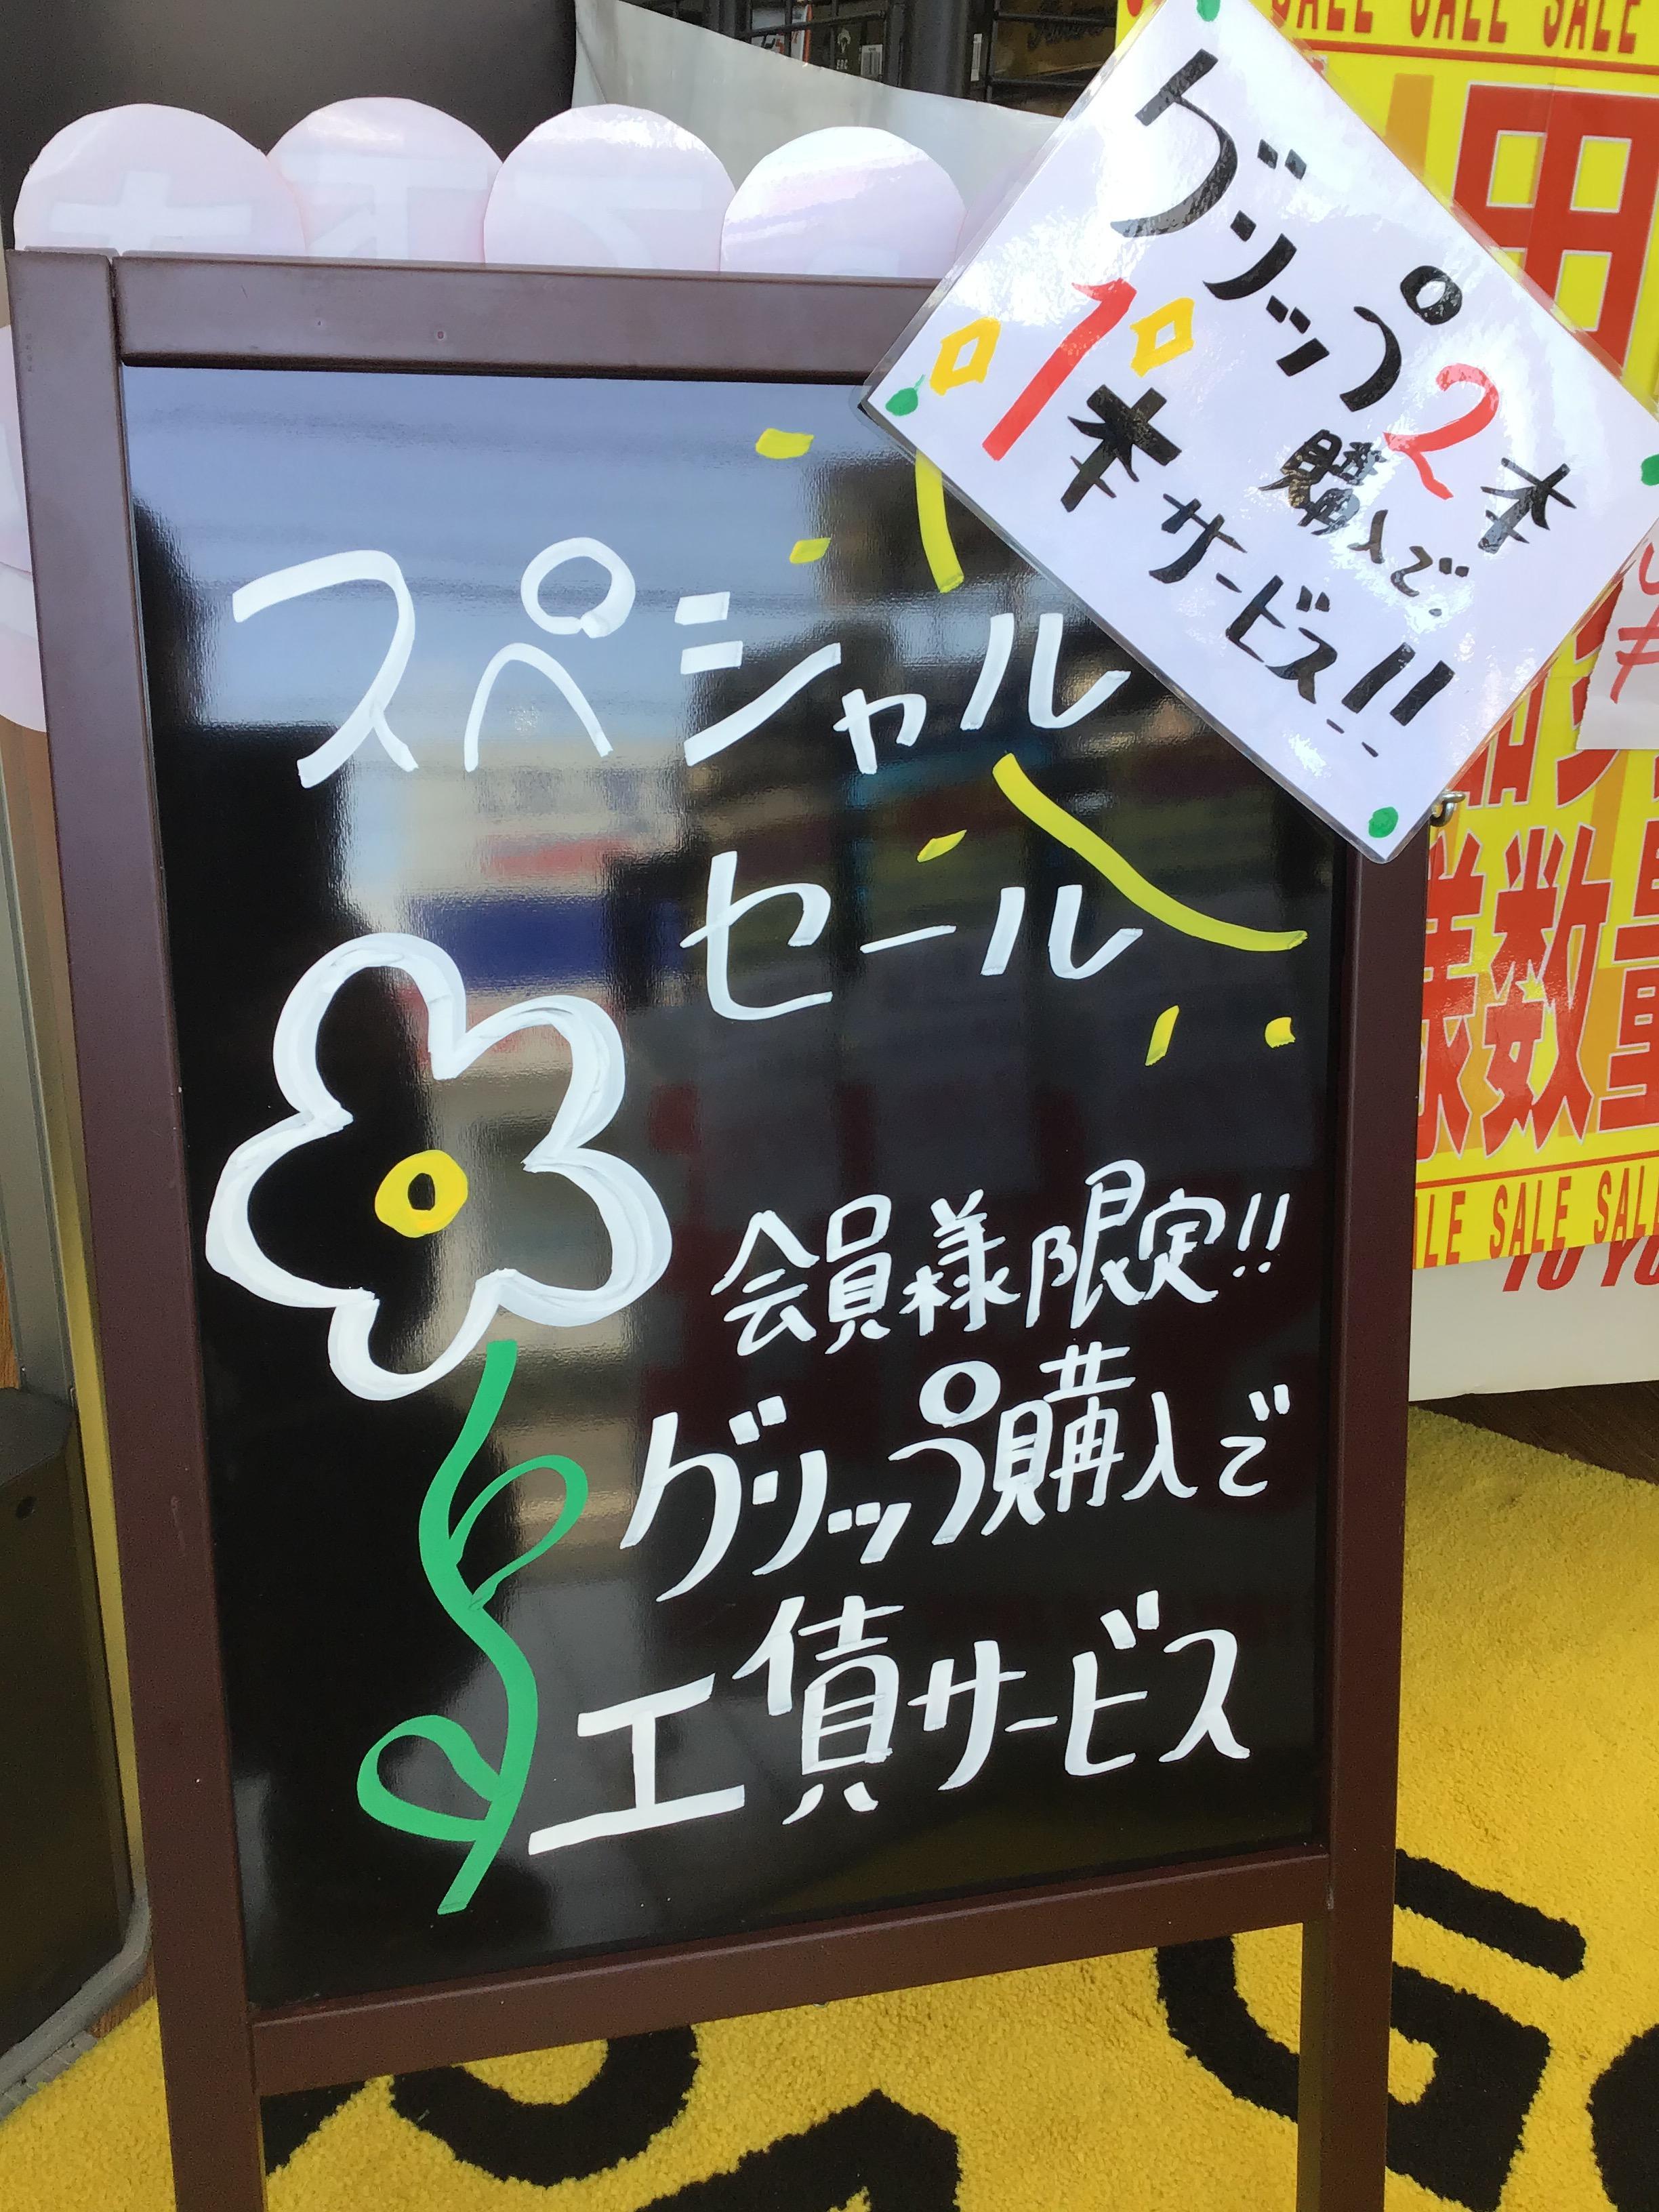 グリップ2本
購入で、
1本サービス!!
スペシャル
セール
会員様限定!!
グリップ購入で
工賃サービス
SALE SALE SALE
様数量
SALE